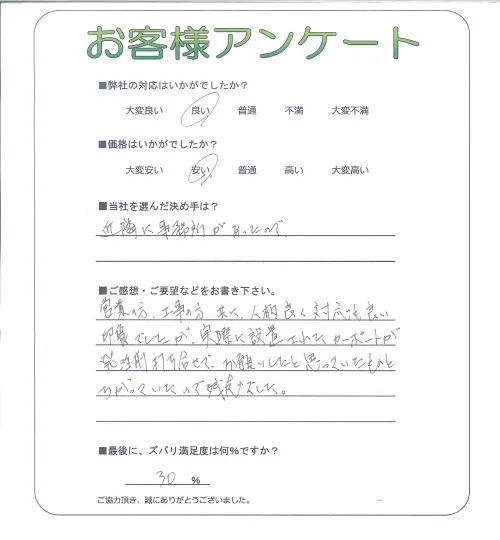 お客様アンケート
■弊社の対応はいかがでしたか？
大変良い 良い 普通 不満 大変不満
■価格はいかがでしたか？
大変安い 安い 普通 高い 大変高い
■当社を選んだ決め手は？
近隣に事務所があったので、
■ご感想・ご要望などをお書き下さい。
営業の方、工事の方 共に、人柄良く対応も良い
印象でしたが、実際に設置されたカーポートが
発注前打ち合せで、お願いしたと思っていたものと
ちがっていたので残念でした。
■最後に、ズバリ満足度は何%ですか？
30 %
ご協力頂き、誠にありがとうございました。